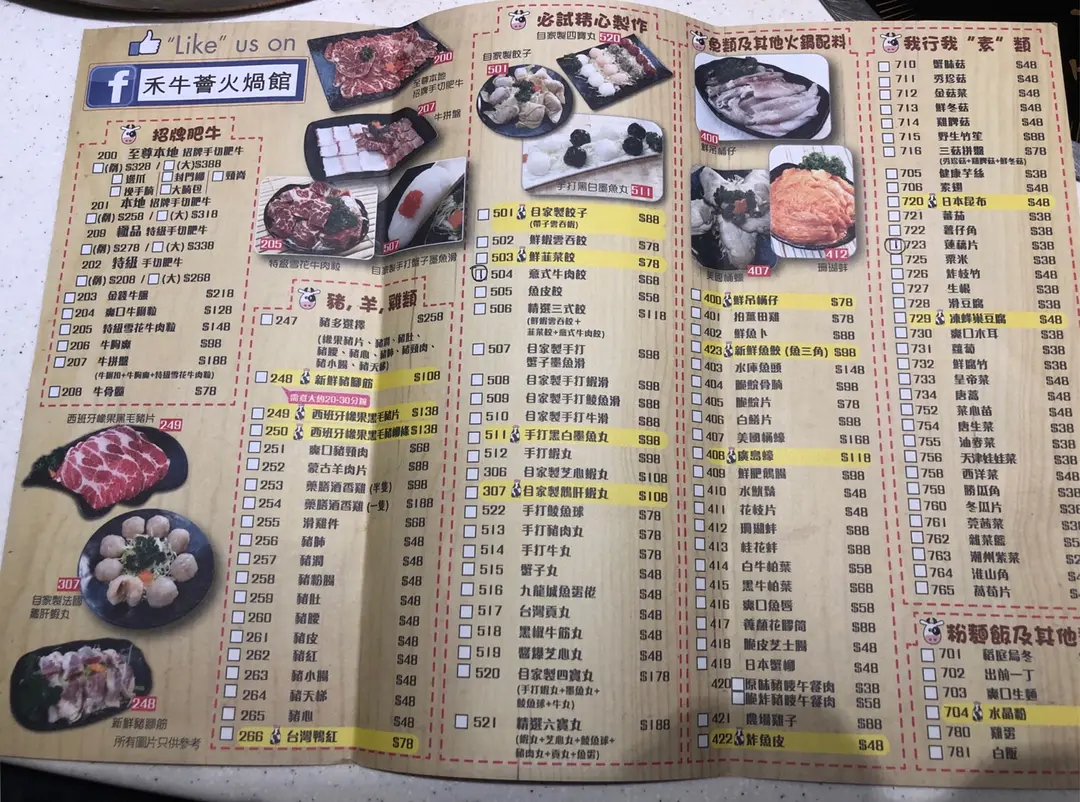 "Like" us on
f 禾牛薈火焗館
200
至尊本地
招牌手切肥牛
207
牛拼盤
205
特級雪花牛肉粒
507
自家製手打蟹子墨魚滑
招牌肥牛
200 至尊本地 招牌手切肥牛
(例) $328 / (大) $388
選爪 封門柳 頸脊
換手腩 大腩包
201 本地 招牌手切肥牛
(例) $258 / (大) $318
209 極品 特級手切肥牛
(例) $278 / (大) $338
202 特級 手切肥牛
(例) $208 / (大) $268
203 金錢牛𦟌 $218
204 爽口牛胸粒 $128
205 特級雪花牛肉粒 $148
206 牛胸爽 $98
207 牛拼盤 $188
208 牛骨髓 $78
西班牙橡果黑毛豬片 249
307
自家製法國
鵝肝蝦丸
248
新鮮豬腳筋
所有圖片只供參考
豬, 羊, 雞類
247 豬多選擇 $258
(橡果豬片、豬潤、豬肚、
豬腰、豬心、豬頸肉、
豬小腸、豬天梯)
248 新鮮豬腳筋 $108
需煮大約20-30分鐘
249 西班牙橡果黑毛豬片 $138
250 西班牙橡果黑毛豬柳條 $138
251 爽口豬頸肉 $68
252 蒙古羊肉片 $88
253 藥膳酒香雞 (半隻) $98
254 藥膳酒香雞 (一隻) $188
255 滑雞件 $68
256 豬肺 $48
257 豬潤 $48
258 豬粉腸 $48
259 豬肚 $48
260 豬腰 $48
261 豬皮 $48
262 豬紅 $48
263 豬小腸 $48
264 豬天梯 $48
265 豬心 $48
266 台灣鴨紅 $78
必試精心製作
自家製四寶丸 520
自家製餃子
501
手打黑白墨魚丸 511
501 自家製餃子 $88
(帶子雲吞蝦)
502 鮮蝦雲吞餃 $78
503 鮮韮菜餃 $78
504 意式牛肉餃 $68
505 魚皮餃 $58
506 精選三式餃 $118
(鮮蝦雲吞餃+
韮菜餃+意式牛肉餃)
507 自家製手打 $98
蟹子墨魚滑
508 自家製手打蝦滑 $98
509 自家製手打鯪魚滑 $88
510 自家製手打牛滑 $88
511 手打黑白墨魚丸 $98
512 手打蝦丸 $98
306 自家製芝心蝦丸 $108
307 自家製鵝肝蝦丸 $108
522 手打鯪魚球 $78
513 手打豬肉丸 $78
514 手打牛丸 $78
515 蟹子丸 $48
516 九龍城魚蛋佬 $48
517 台灣貢丸 $48
518 黑椒牛筋丸 $48
519 醬爆芝心丸 $48
520 自家製四寶丸 $178
(手打蝦丸+墨魚丸+
鯪魚球+牛丸)
521 精選六寶丸 $188
(蝦丸+芝心丸+鯪魚球+
豬肉丸+貢丸+魚蛋)
魚類及其他火鍋配料
400
鮮吊桶仔
美國桶蠔 407
412
珊瑚蚌
400 鮮吊桶仔 $78
401 拍薑田雞 $78
402 鮮魚卜 $88
423 新鮮魚鮫 (魚三角) $98
403 水庫魚頭 $148
404 脆鯇骨腩 $98
405 脆鯇片 $78
406 白鱔片 $98
407 美國桶蠔 $168
408 廣島蠔 $118
409 鮮肥鵝腸 $98
410 水魷鬚 $48
411 花枝片 $48
412 珊瑚蚌 $88
413 桂花蚌 $88
414 白牛柏葉 $48
415 黑牛柏葉 $68
416 爽口魚唇 $58
417 養顏花膠筒 $88
418 脆皮芝士腸 $48
419 日本蟹柳 $48
420 原味豬睽午餐肉 $38
脆炸豬睽午餐肉 $58
421 農場雞子 $88
422 炸魚皮 $48
我行我"素"類
710 蟹味菇 $48
711 秀珍菇 $48
712 金菇菜 $48
713 鮮冬菇 $48
714 雞髀菇 $48
715 野生竹笙 $88
716 三菇拼盤 $78
(秀珍菇+雞髀菇+鮮冬菇)
705 健康芋絲 $38
706 素翅 $48
720 日本昆布 $48
721 蕃茄 $38
722 薯仔角 $38
723 蓮藕片 $38
725 粟米 $38
726 炸枝竹 $48
727 生根 $48
728 滑豆腐 $38
729 凍蜂巢豆腐 $48
730 爽口木耳 $38
731 蘿蔔 $38
732 鮮腐竹 $38
733 皇帝菜 $48
734 唐蒿 $48
752 菜心苗 $48
754 唐生菜 $38
755 油麥菜 $48
756 天津娃娃菜 $38
758 西洋菜 $48
759 勝瓜角
760 冬瓜片
761 莞茜菜
762 雜菜籃
763 潮州紫菜
764 淮山角
765 萵筍片
粉麵飯及其他
701 稻庭烏冬
702 出前一丁
703 爽口生麵
704 水晶粉
780 雞蛋
781 白飯